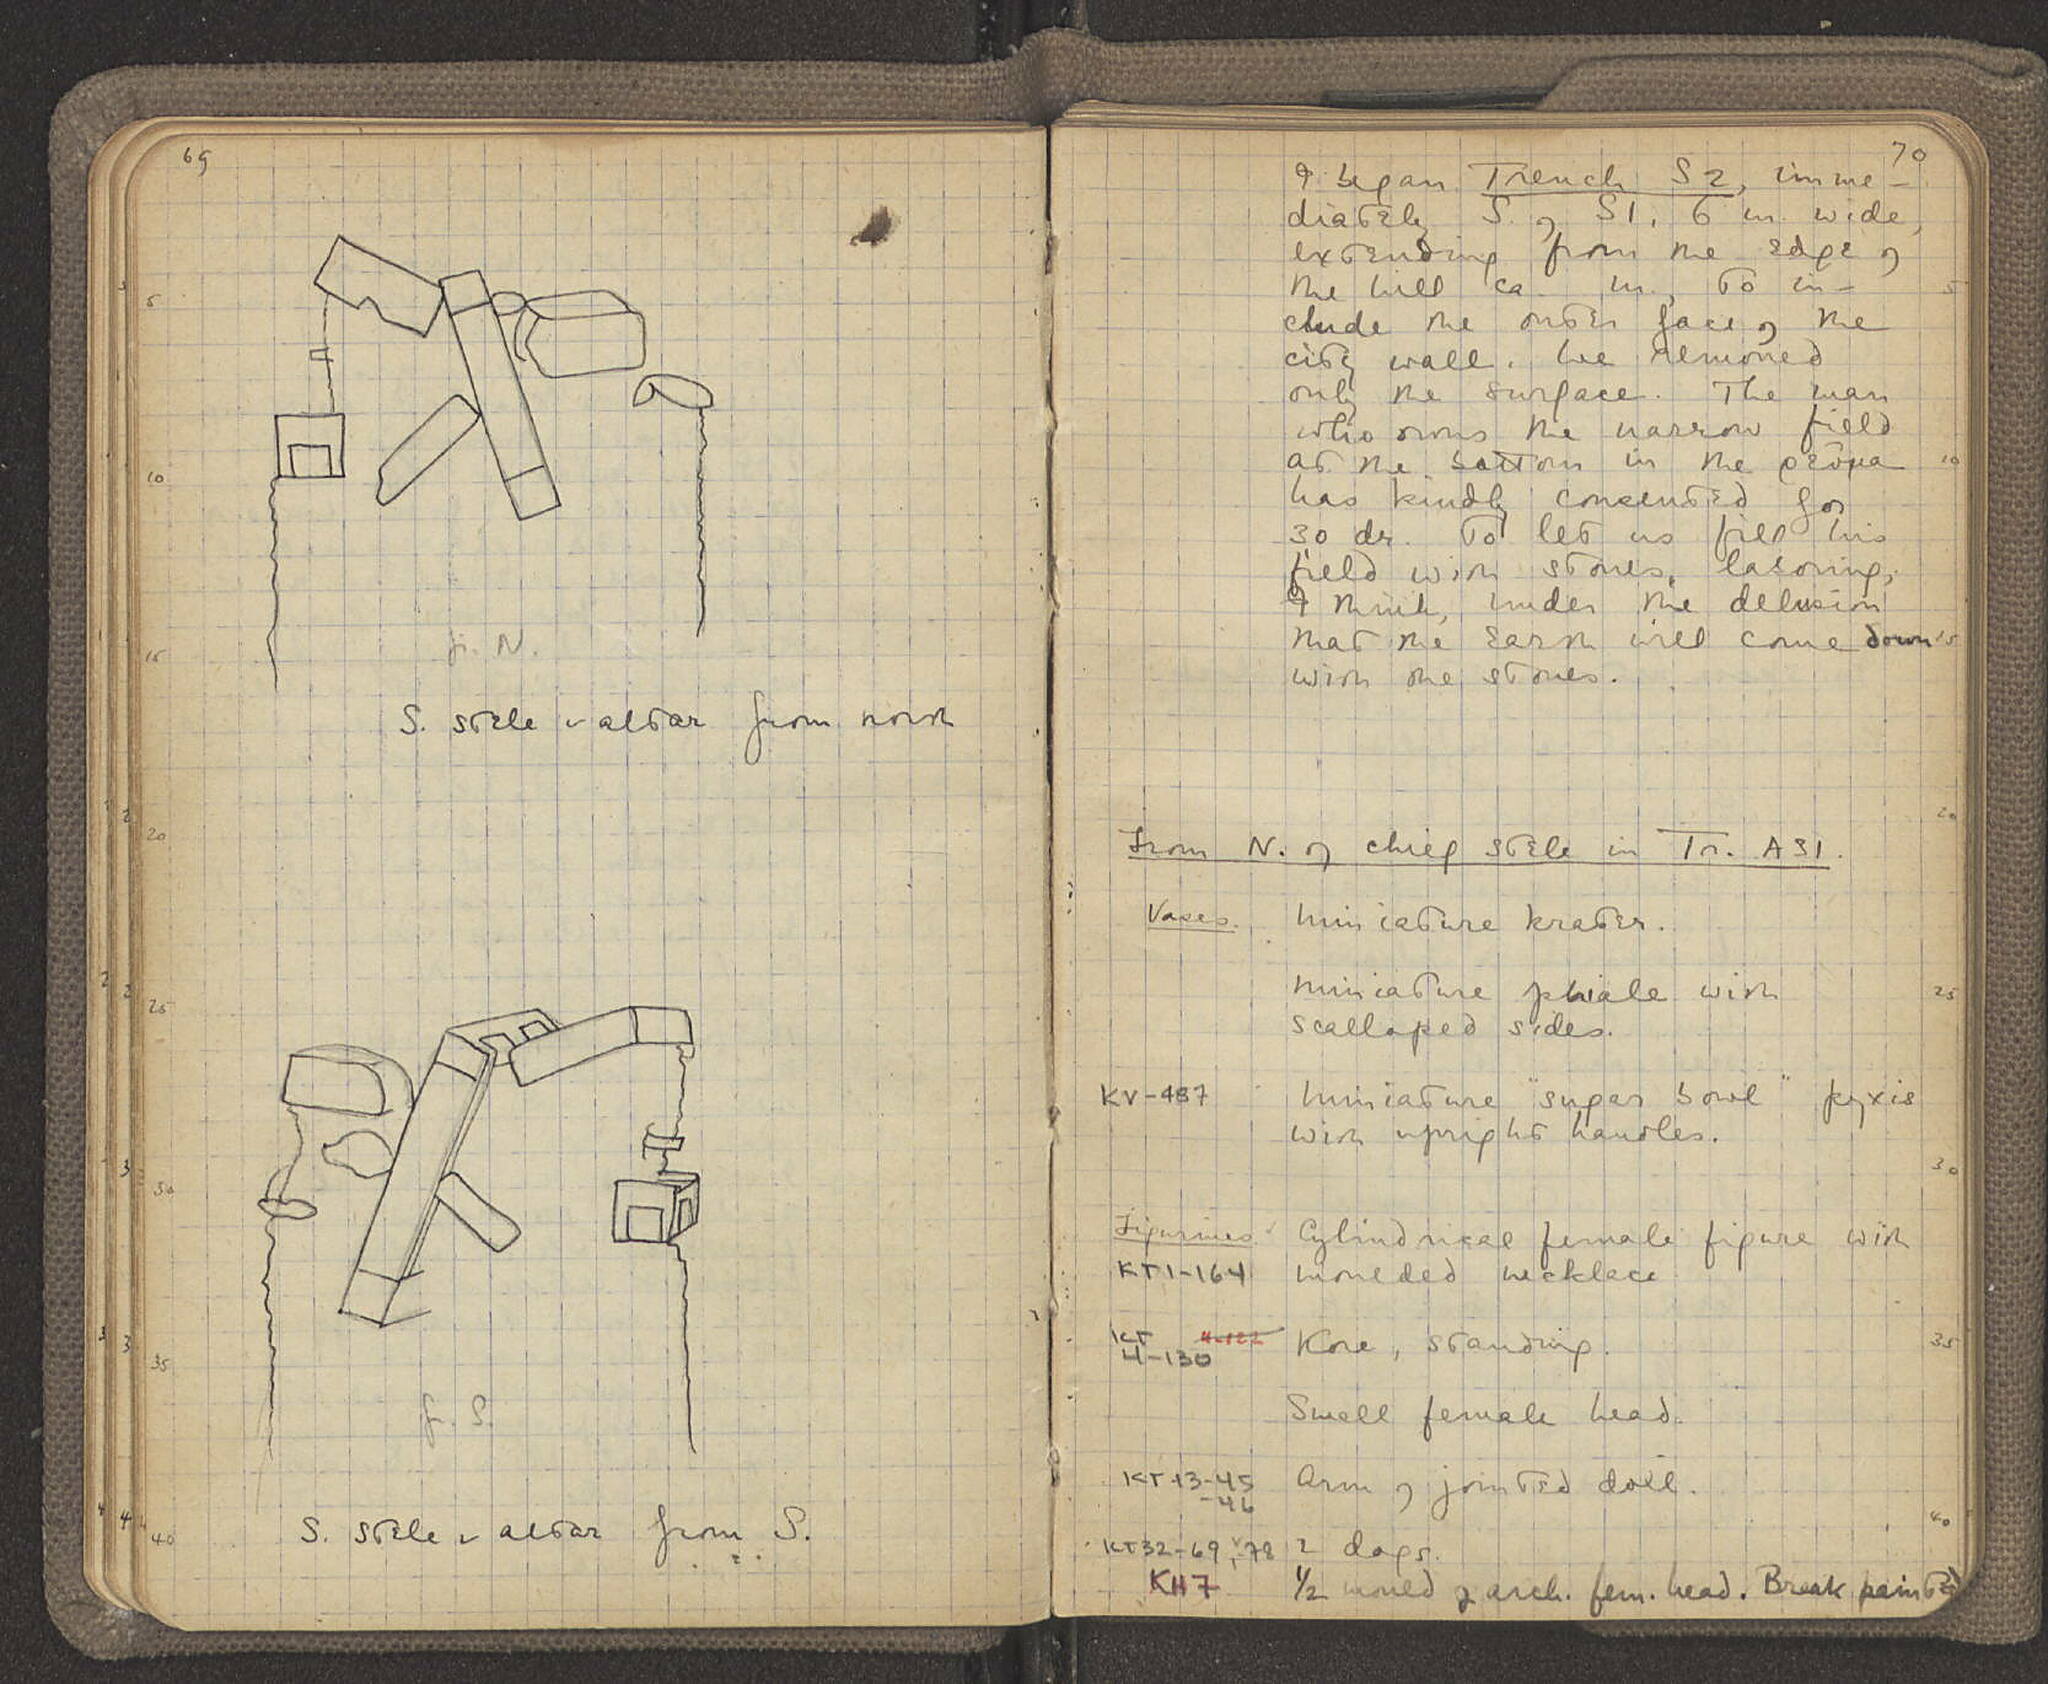 69
5
10
15
fr. N.
S. stele & altar from north
20
25
30
35
fr. S.
S. stele & altar from S.
40
70
I began Trench S2, imme-
diately S. of S1, 6 m. wide,
extending from the edge of
the hill ca. m., to in- 5
clude the outer face of the
city wall. We removed
only the surface. The man
who owns the narrow field
at the bottom in the ρεύμα 10
has kindly consented for
30 dr. to let us fill his
field with stones, laboring,
I think, under the delusion
that the earth will come down 15
with the stones.
20
From N. of chief stele in Tr. A31.
Vases. Miniature krater.
Miniature phiale with 25
scalloped sides.
KV-487 Miniature "sugar bowl" pyxis
with upright handles.
30
Figurines Cylindrical female figure with
KT1-164 moulded necklace
KT Kore, standing. 35
4-130
Small female head.
KT13-45 Arm of jointed doll.
-46
40
KT32-69 -78 2 dogs.
KH7 1/2 mould of arch. fem. head. Break painted